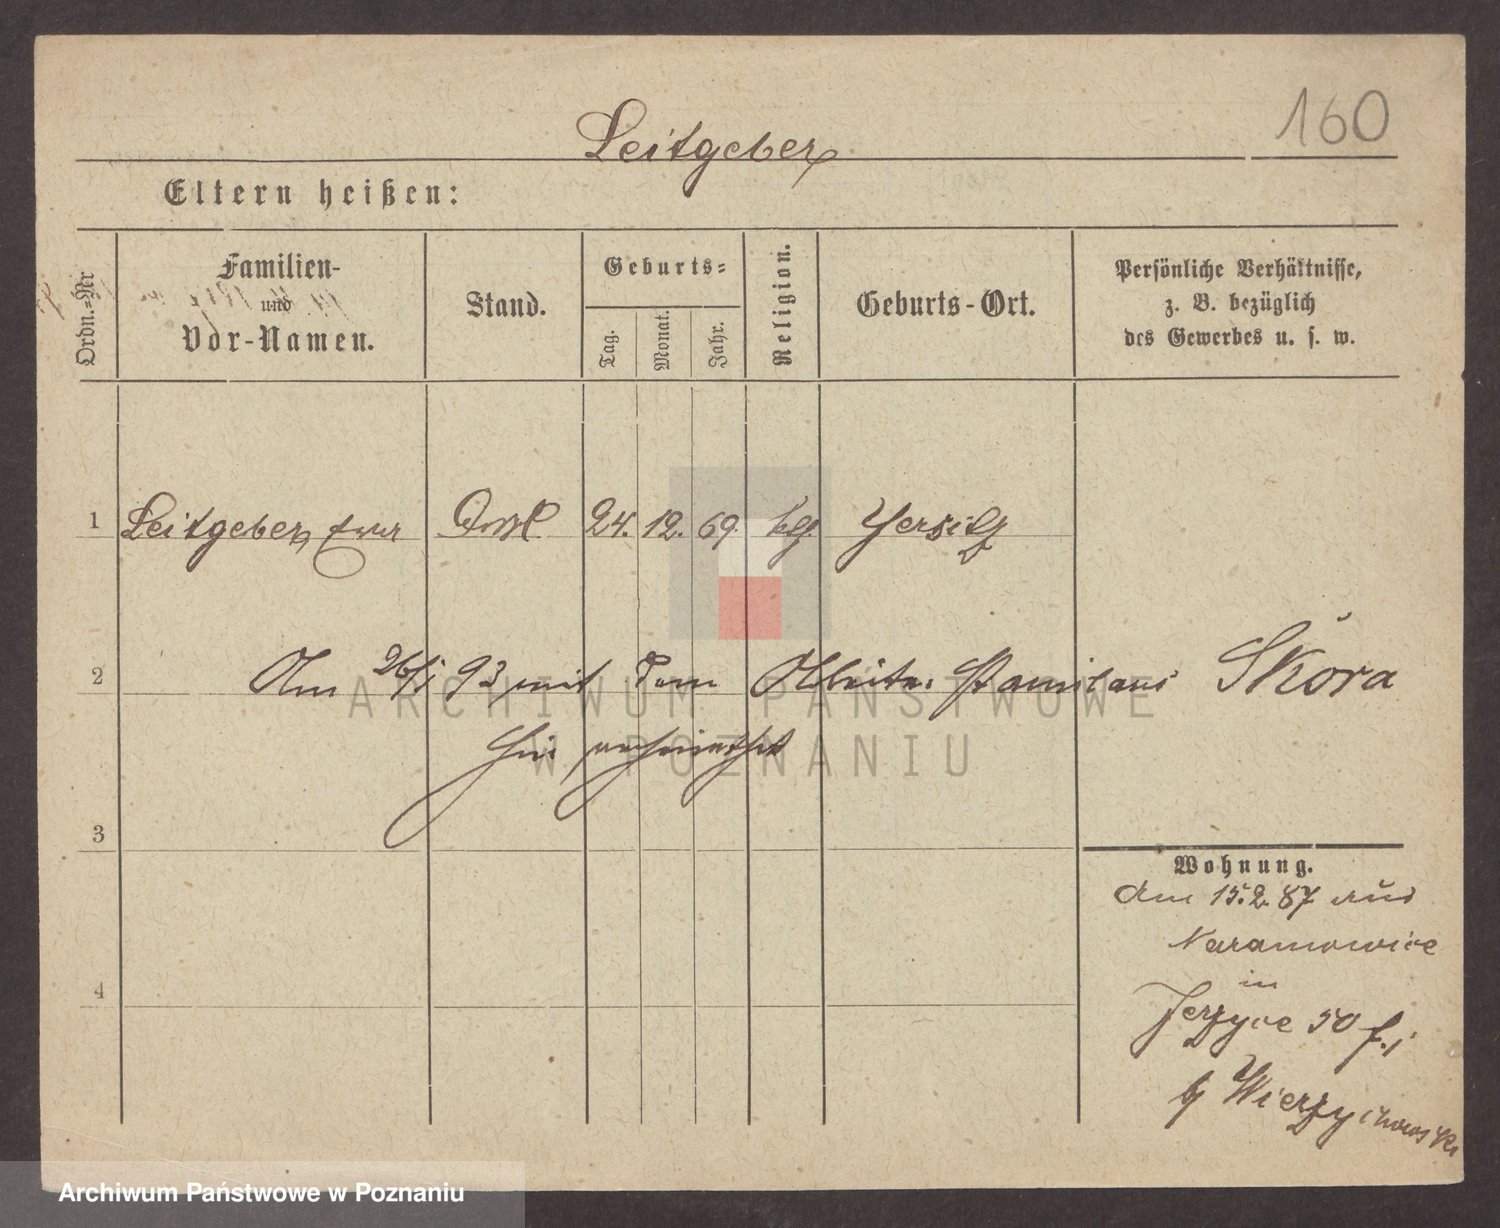 160
Leitgeber
Eltern heißen:
Ordn.-Nr
Familien-
und
Vor-Namen.
Stand.
Geburts-
Tag.
Monat.
Jahr.
Religion.
Geburts-Ort.
Persönliche Verhältnisse,
z. B. bezüglich
des Gewerbes u. s. w.
1 Leitgeber, Eva 24. 12. 69. kg. Jersitz
2 Am 26/1 93 mit dem Arbeiter Stanislaus Skóra
hier verheirathet
3
4
Wohnung.
Am 15.2.87 aus
Naramowice
in
Jerzyce 50 f.
b/ Wierzychowski
ARCHIWUM PAŃSTWOWE
W POZNANIU
Archiwum Państwowe w Poznaniu